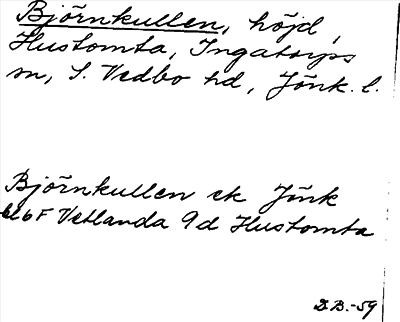 Björnkullen, höjd,
Hustomta, Ingatorps
sn, S. Vedbo hd, Jönk. l.
Björnkullen ek Jönk
6F Vetlanda 9d Hustomta
D.B.-59